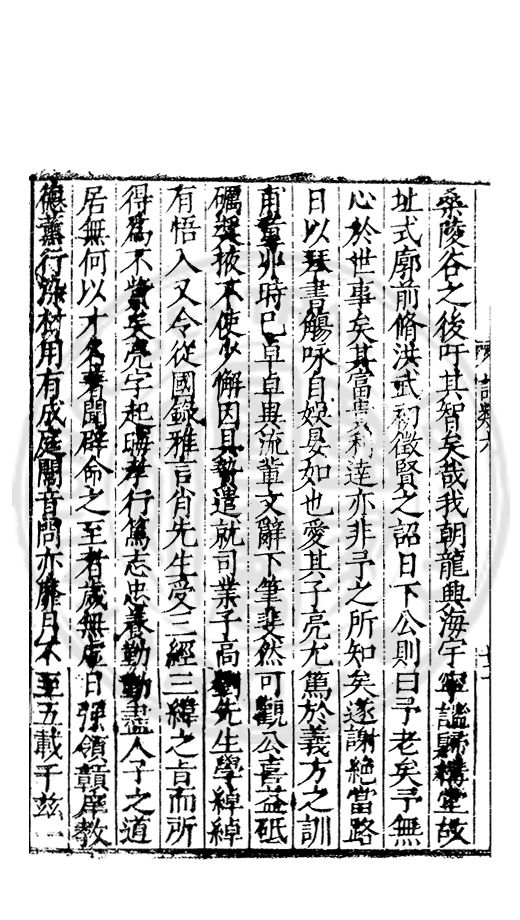 桑陵谷之後吁其智矣哉我朝龍興海宇寧謐歸構堂故
址式廓前脩洪武初徵賢之詔日下公則曰予老矣予無
心於世事矣其富貴利達亦非予之所知矣遂謝絕當路
日以琴書觴咏自娛晏如也愛其子亮尤篤於義方之訓
甫童丱時已卓卓與流輩文辭下筆斐然可觀公喜益砥
礪奬掖不使少懈因具贄遣就司業子高劉先生學綽綽
有悟入又令從國錄雅言肖先生受三經三緯之旨而所
得為不貲矣亮字起晦孝行篤志忠養勤勤盡人子之道
居無何以才名著聞辟命之至者歲無虛日強領贛庠教
德薰行染材用有成庭闈音問亦靡日不至五載于茲